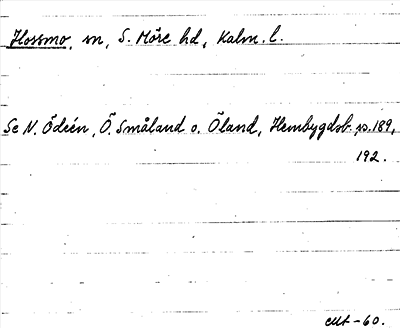 Hossmo, sn, S. Möre hd, Kalm. l.
Se N. Ödeén, Ö. Småland o. Öland, Hembygdsb. p. 189,
192.
-60.